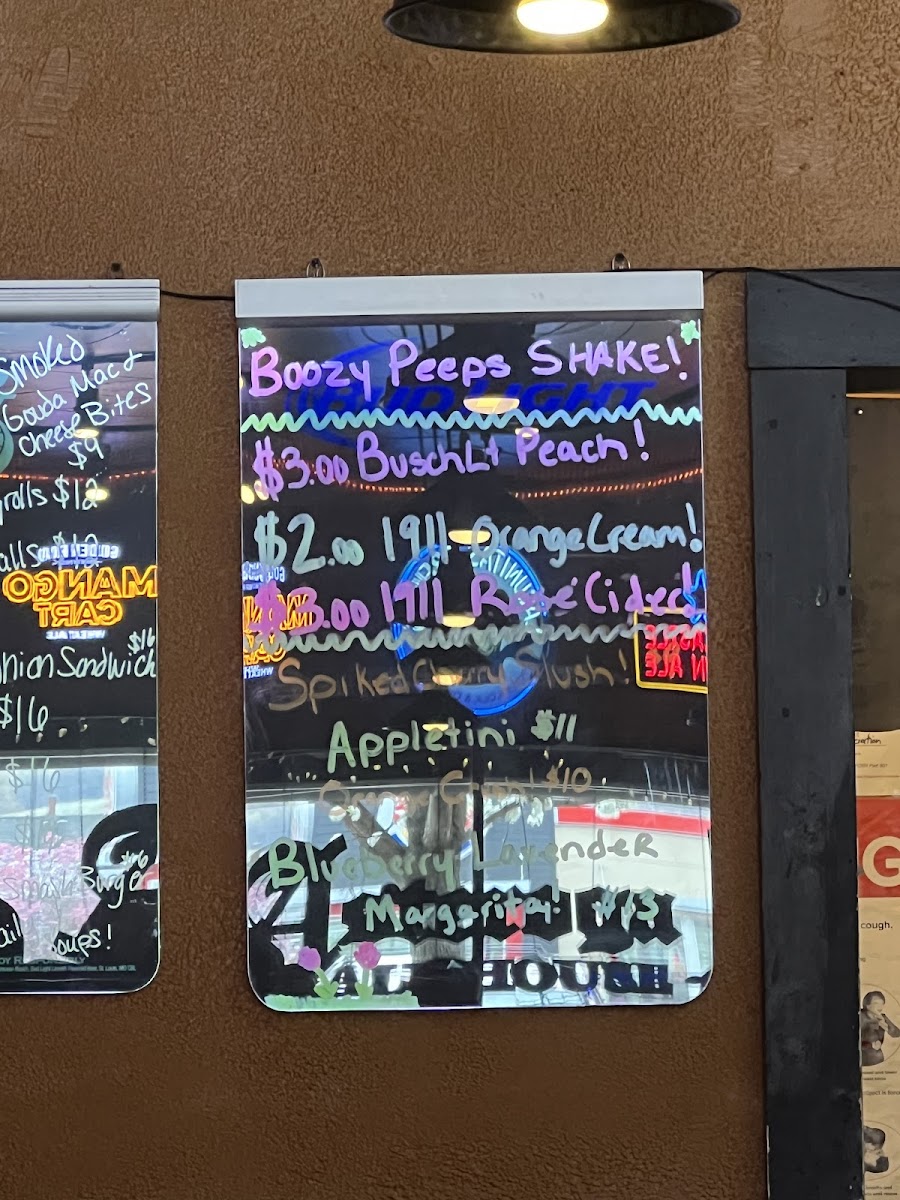 Smoked
Gouda Mac &
Cheese Bites
$9
rolls $12
MANGO
CART
$16
nion Sandwich
$16
$16
Smash Burger
oups!
Boozy Peeps SHAKE!
BUD LIGHT
$3.00 Busch Lt Peach!
$2.00 1911 Orange Cream!
$3.00 1911 Rosé Cider!
Spiked Cherry Slush!
Appletini $11
Orange Crush $10
Blueberry Lavender
Margarita! $13
G
cough.